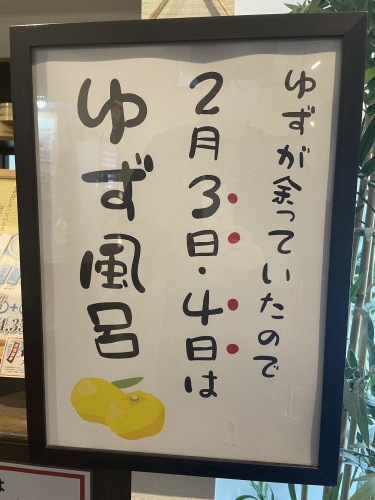 ゆずが余っていたので
2月3日・4日は
ゆず風呂